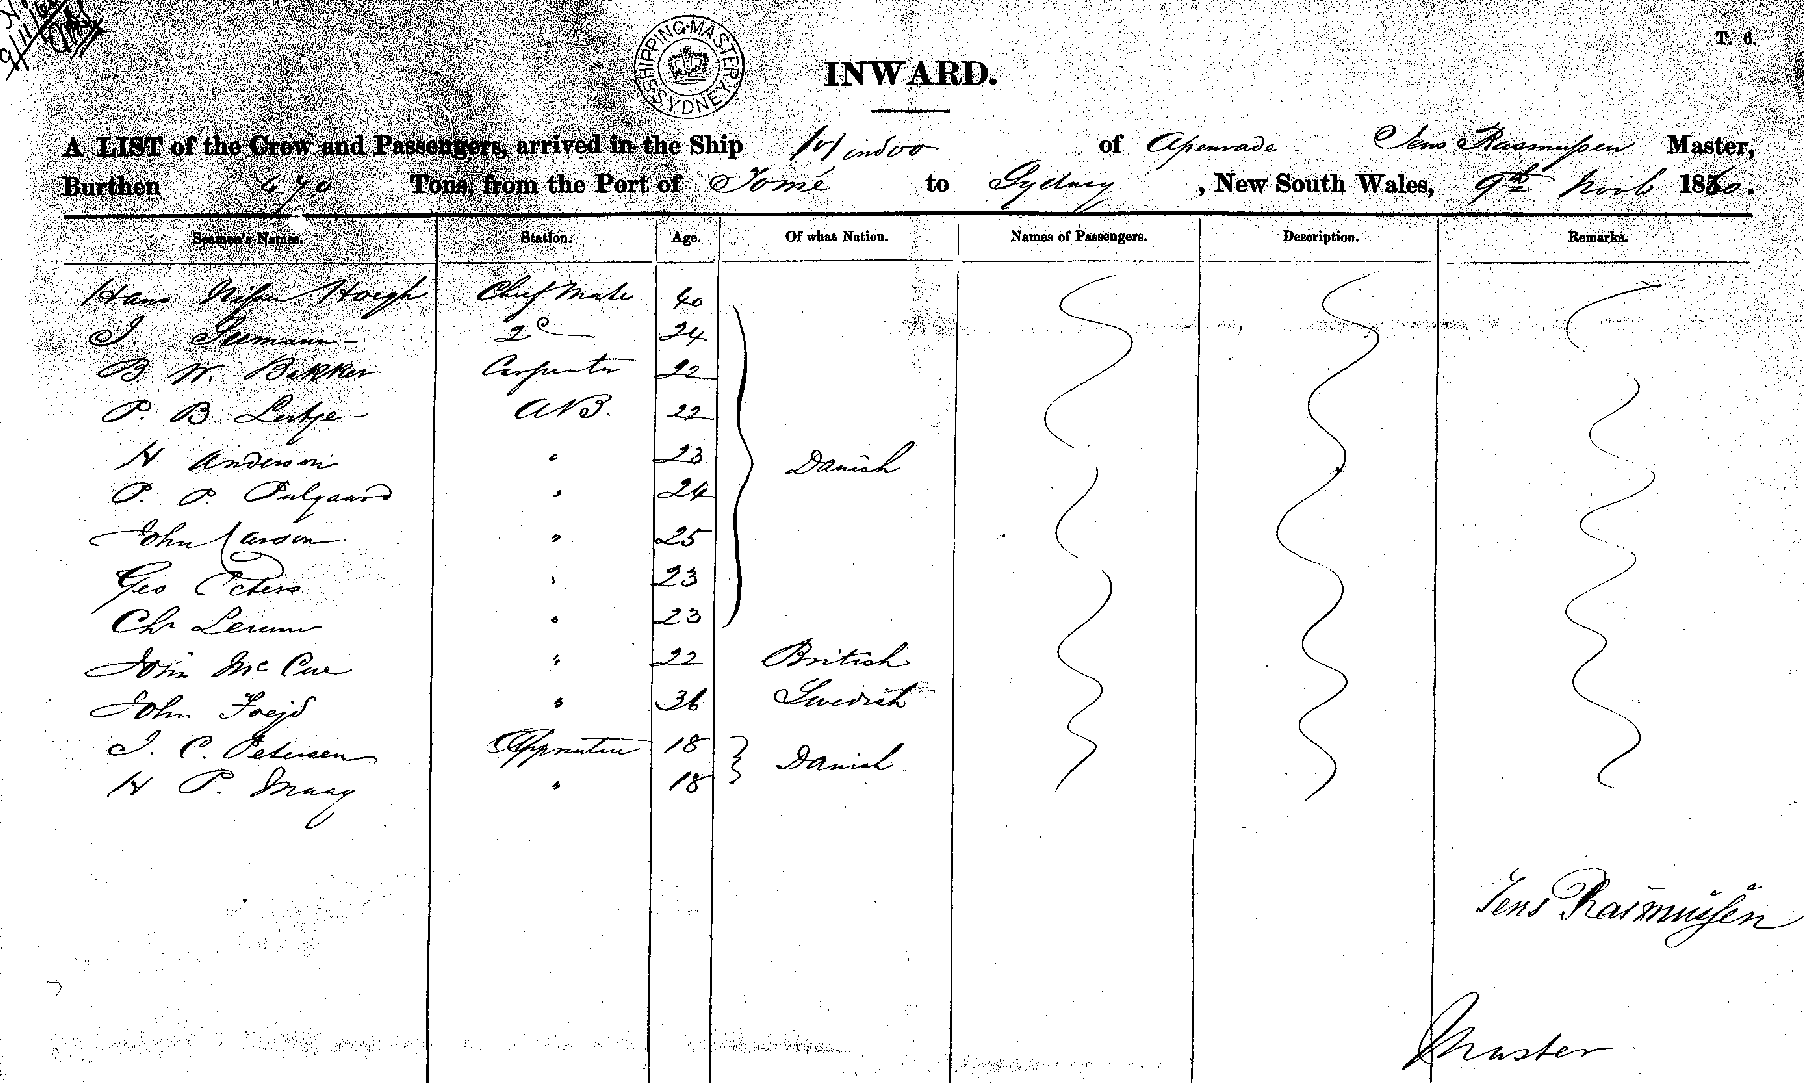 T. 6.
SHIPPING MASTER SYDNEY
INWARD.
A LIST of the Crew and Passengers, arrived in the Ship Hindoo of Apenrade Jens Rasmussen Master,
Burthen Tons, from the Port of Tomé to Sydney, New South Wales, 9th Novb 1860.
Seamen's Names. Station. Age. Of what Nation. Names of Passengers. Description. Remarks.
Hans Nissen Hoegh Chief Mate 40
24
B W. Bakker Carpenter 22
P. B. AB. 22
H Anderson " 23 Danish
P. P. " 24
John Larson " 25
Geo Peters " 23
Chr " 23
John McCue " 22 British
John " 36 Swedish
J. C. Petersen Apprentice 18
H P. " 18 Danish
Jens Rasmussen
Master